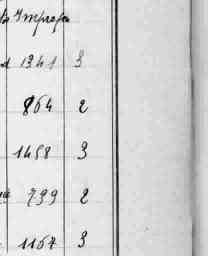 1341 3
864 2
1458 3
799 2
1167 3